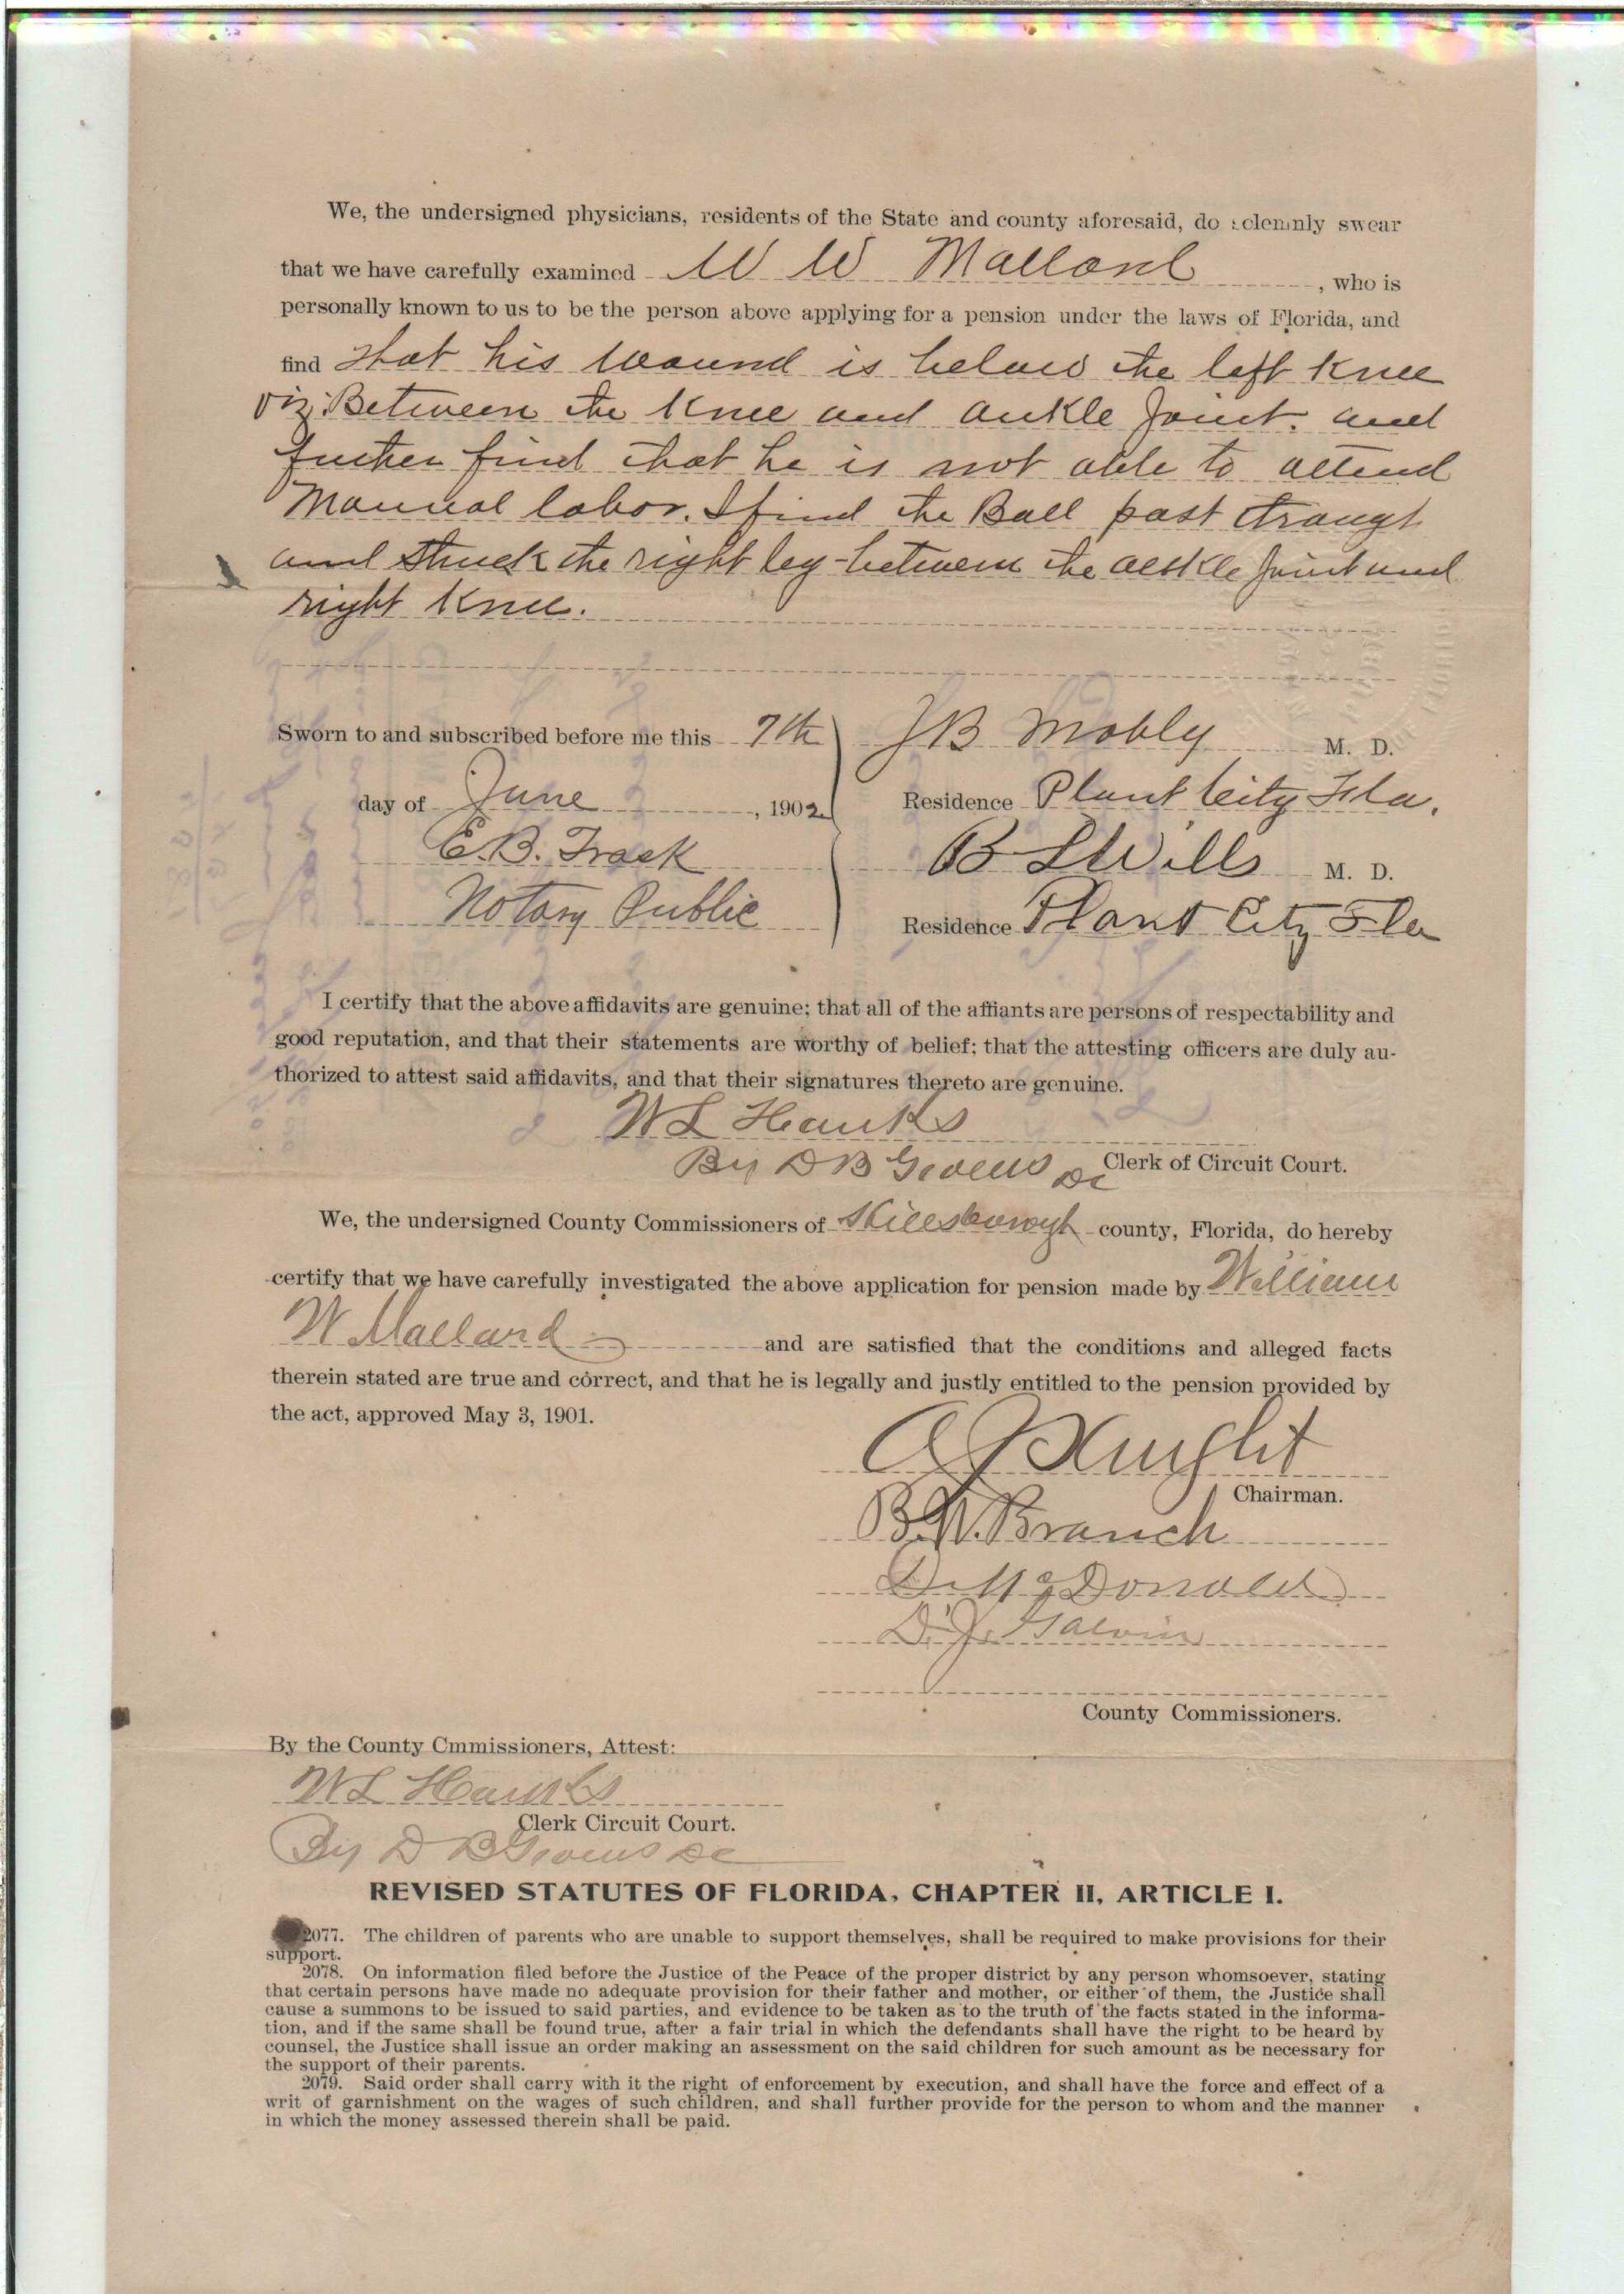 We, the undersigned physicians, residents of the State and county aforesaid, do solemnly swear
that we have carefully examined W W Mallard, who is
personally known to us to be the person above applying for a pension under the laws of Florida, and
find that his wound is below the left Knee
viz; Between the Knee and ankle Joint. and
further find that he is not able to attend
Manual labor. I find the Ball past through
and struck the right leg between the ankle Joint and
right Knee.
Sworn to and subscribed before me this 7th
day of June, 1902
E. B. Trask
Notary Public
J B Mobly M. D.
Residence Plant City Fla.
B L Wills M. D.
Residence Plant City Fla
I certify that the above affidavits are genuine; that all of the affiants are persons of respectability and
good reputation, and that their statements are worthy of belief; that the attesting officers are duly au-
thorized to attest said affidavits, and that their signatures thereto are genuine.
W L Hanks
By D B Givens DC Clerk of Circuit Court.
We, the undersigned County Commissioners of Hillsborough county, Florida, do hereby
certify that we have carefully investigated the above application for pension made by William
W Mallard and are satisfied that the conditions and alleged facts
therein stated are true and correct, and that he is legally and justly entitled to the pension provided by
the act, approved May 3, 1901.
A J Knight
Chairman.
B. W. Branch
D. McDonald
D. J. Galvin
County Commissioners.
By the County Cmmissioners, Attest:
W L Hanks
Clerk Circuit Court.
By D B Givens DC
REVISED STATUTES OF FLORIDA, CHAPTER II, ARTICLE I.
2077. The children of parents who are unable to support themselves, shall be required to make provisions for their
support.
2078. On information filed before the Justice of the Peace of the proper district by any person whomsoever, stating
that certain persons have made no adequate provision for their father and mother, or either of them, the Justice shall
cause a summons to be issued to said parties, and evidence to be taken as to the truth of the facts stated in the informa-
tion, and if the same shall be found true, after a fair trial in which the defendants shall have the right to be heard by
counsel, the Justice shall issue an order making an assessment on the said children for such amount as be necessary for
the support of their parents.
2079. Said order shall carry with it the right of enforcement by execution, and shall have the force and effect of a
writ of garnishment on the wages of such children, and shall further provide for the person to whom and the manner
in which the money assessed therein shall be paid.